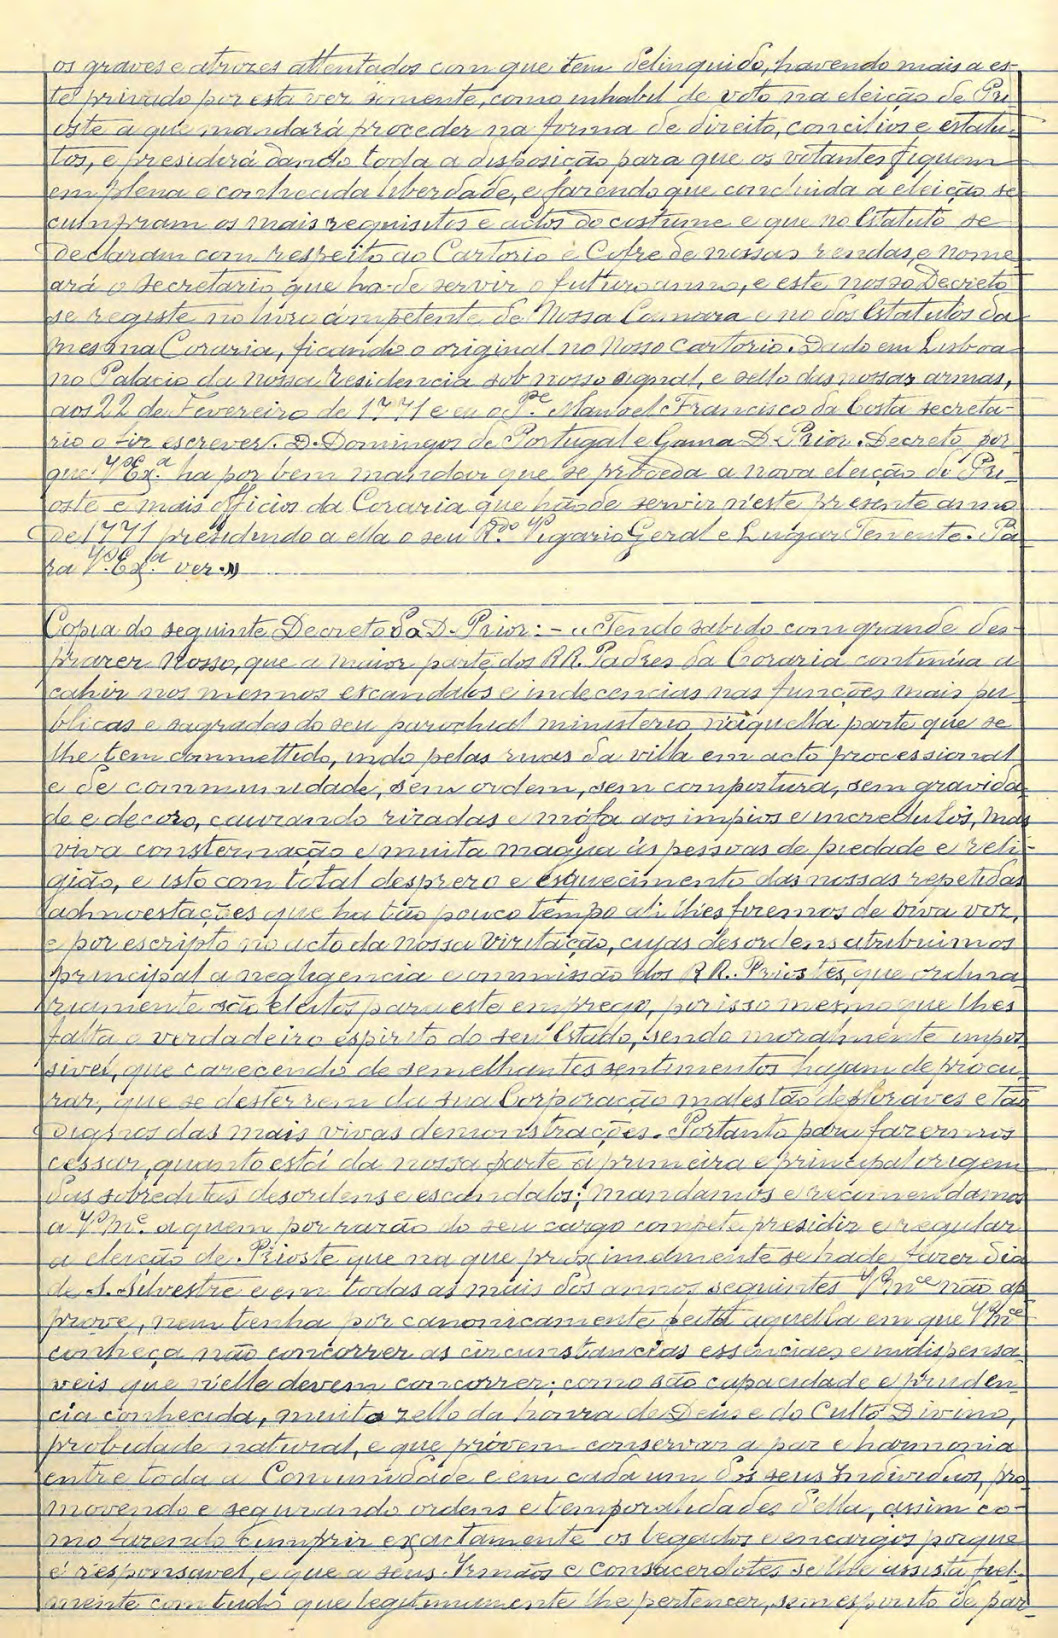 os graves e atrozes attentados com que tem delinquido, havendo mais a es-
te privado por esta vez sómente, como inhabil de voto na eleição de Pri-
oste a que mandará proceder na forma de direito, concilios e estatu-
tos, e presidirá dando toda a disposição para que os votantes fiquem
em plena e conhecida liberdade, e fazendo que concluida a eleição se
cumpram os mais requisitos e actos do costume e que no Estatuto se
declaram com respeito ao Cartorio e Cofre de nossas rendas, e nome-
ará o secretario que ha-de servir o futturo anno, e este nosso Decreto
se registe no livro competente de Nossa Camara e no dos Estatutos da
mesma Coraria, ficando o original no Nosso Cartorio. Dado em Lisboa
no Palacio da nossa residencia sob nosso signal, e sello das nossas armas,
aos 22 de Fevereiro de 1771 e eu o Pe. Manoel Francisco da Costa secreta-
rio o fiz escrever. D. Domingos de Portugal e Gama D. Prior. Decreto por
que V. Exa. ha por bem mandar que se proceda a nova eleição de Pri-
oste e mais officios da Coraria que hão de servir n'este presente anno
de 1771 presidindo a ella o seu Rdo. Vigario Geral e Lugar Tenente. Pa-
ra V. Exa. ver.»
Copia do seguinte Decreto do D. Prior: – «Tendo sabido com grande des-
prazer Nosso, que a maior parte dos RR. Padres da Coraria continúa a
cahir nos mesmos excandalos e indecencias nas funções mais pu-
blicas e sagradas do seu parochial ministerio n'aquella parte que se
lhe tem commettido, indo pelas ruas da villa em acto processional
e de communidade, sem ordem, sem compostura, sem gravida-
de e decoro, causando rizadas e mófa aos impios e incredulos, mas
viva consternação e muita magua ás pessoas de piedade e reli-
gião, e isto com total desprezo e esquecimento das nossas repetidas
admoestações que ha tão pouco tempo ali lhes fizemos de viva voz,
e por escripto no acto da nossa vizitação, cujas desordens atribuimos
principal a negligencia e ommissão dos RR. Priostes, que ordina-
riamente são eleitos para este emprego, por isso mesmo que lhes
falta o verdadeiro espirito do seu Estado, sendo moralmente impos-
sivel, que carecendo de semelhantes sentimentos hajam de procu-
rar, que se desterrem da sua Corporação males tão graves e tão
dignos das mais vivas demonstrações. Portanto para fazermos
cessar, quanto está da nossa parte a primeira e principal origem
das sobreditas desordens e escandalos; mandamos e recomendamos
a V. Mce. a quem por razão do seu cargo compete presidir e regular
a eleição de Prioste que na que proximalmente se hade fazer dia
de S. Silvestre e em todas as mais dos annos seguintes V. Mce não ap-
prove, nem tenha por canonicamente feita aquella em que V. Mce
conheça não concorrer as circunstancias essenciaes e indispensa-
veis que n'elle devem concorrer; como são capacidade e pruden-
cia conhecida, muito zello da honra de Deus e do Culto Divino,
probidade natural, e que próvem conservar a paz e harmonia
entre toda a Comunidade e em cada um dos seus Individuos, pro-
movendo e segurando ordens e temporalidades d'ella, assim co-
mo fazendo cumprir exactamente os legados e encargos porque
é responsavel, e que a seus Irmãos e Consacerdotes se lhe assista fiel-
mente com tudo que legitimamente lhe pertencer, sem espirito de par-